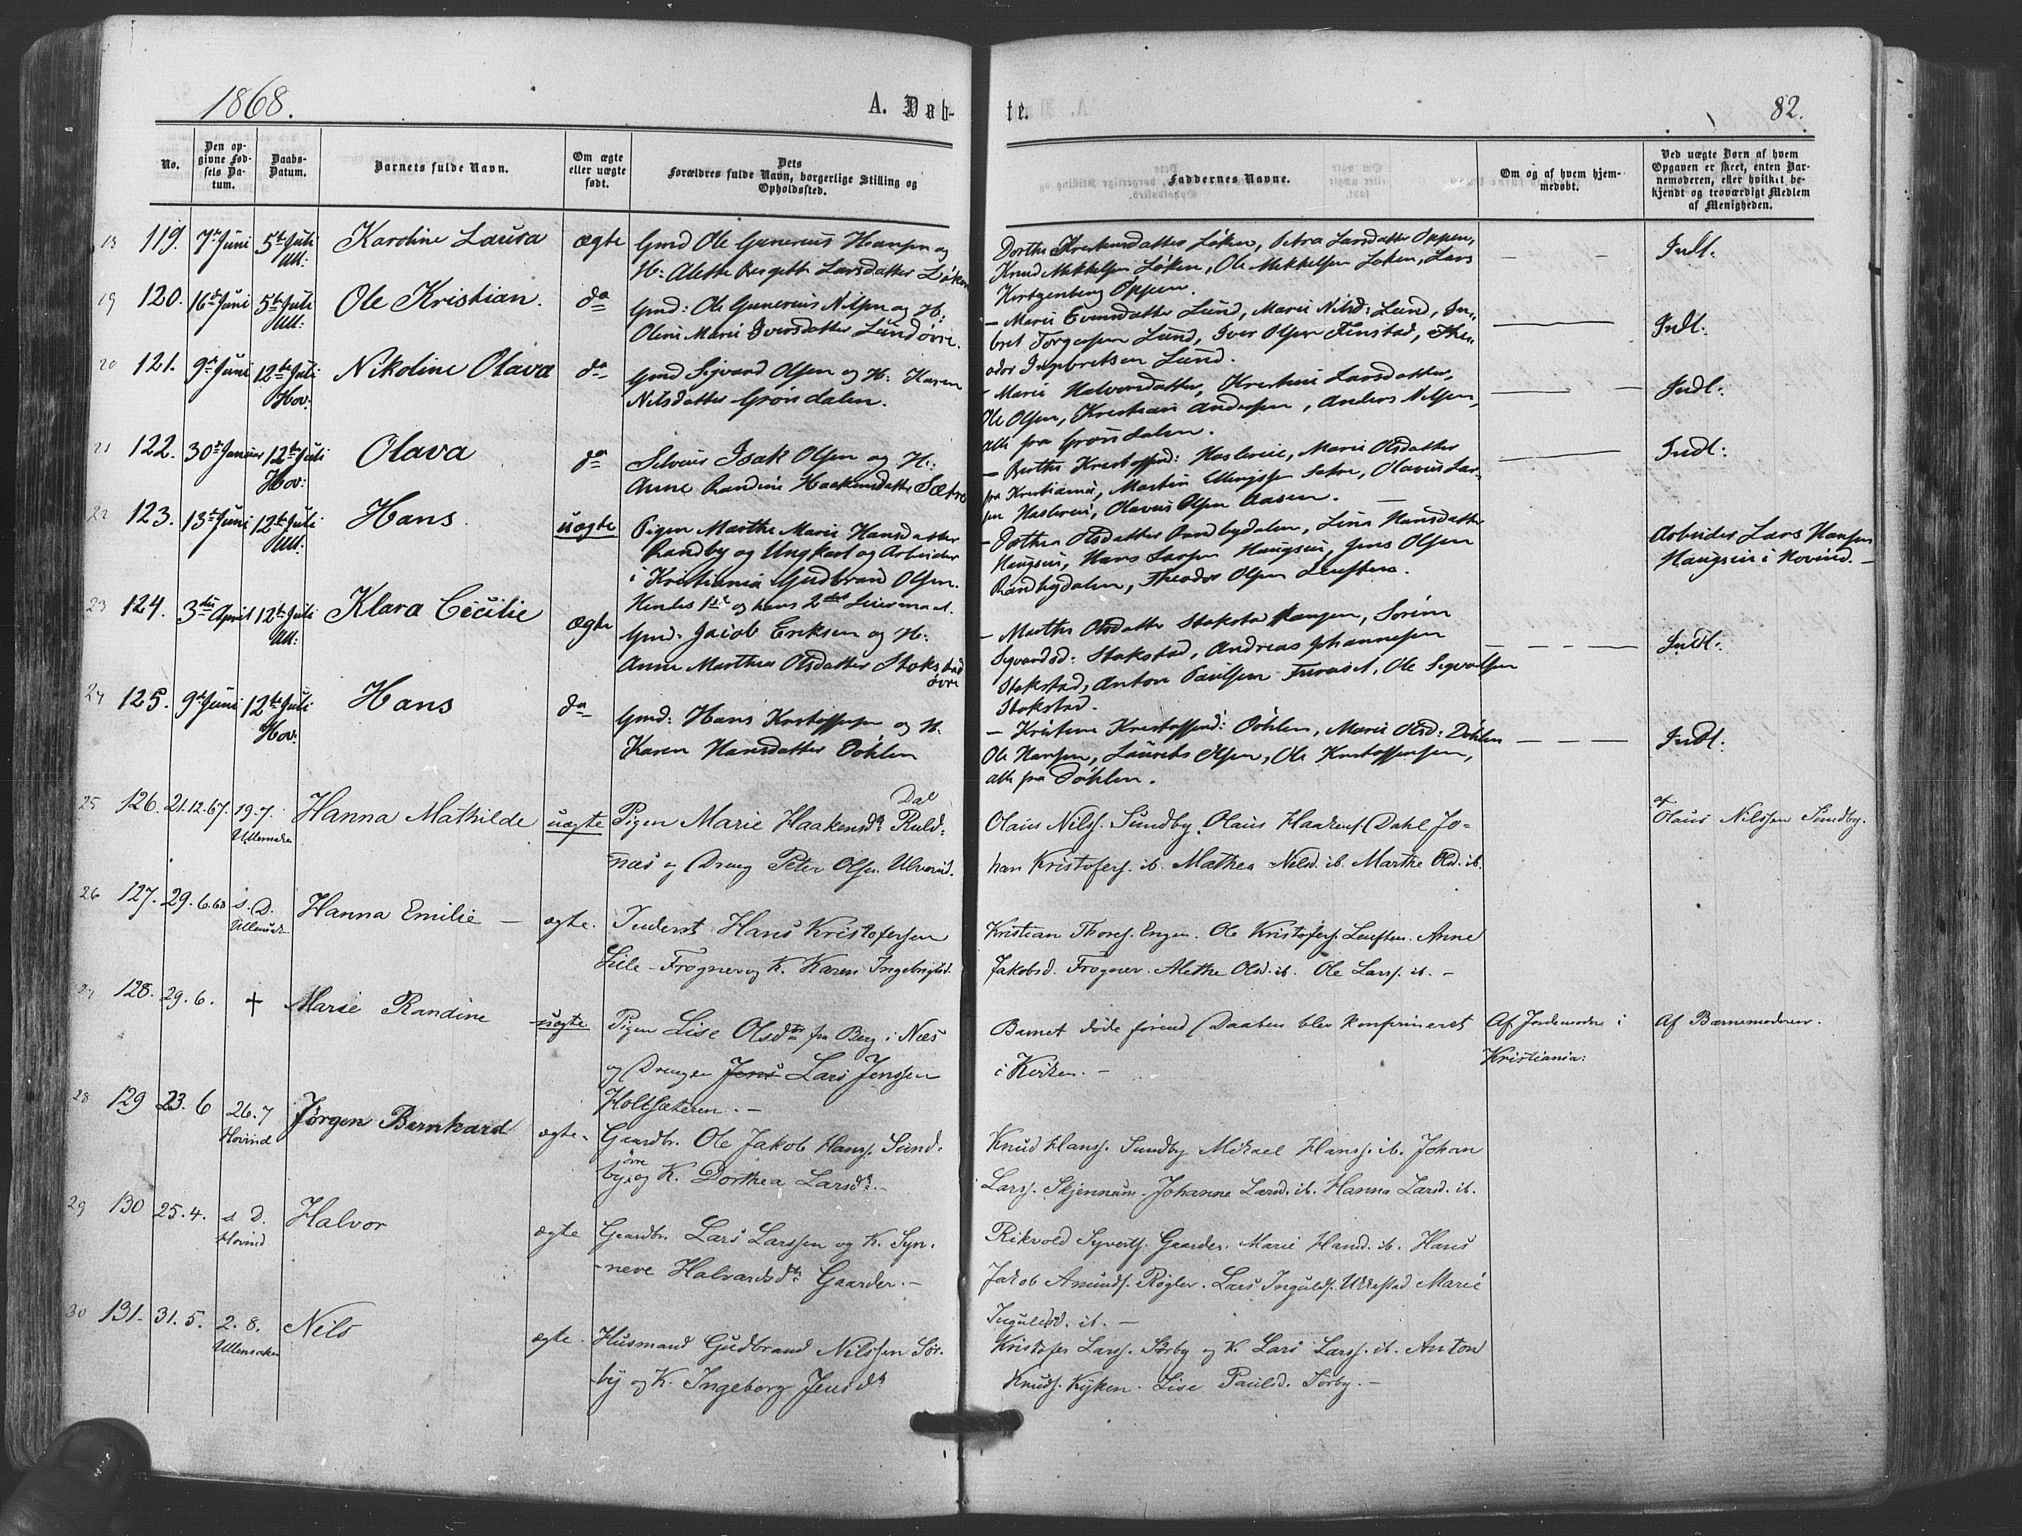 1868.
A. Døb-
te.
82.
No.
Den op-
givne Fød-
sels Da-
tum.
Daabs-
Datum.
Barnets fulde Navn.
Om ægte
eller uægte
født.
Dets
Forældres fulde Navn, borgerlige Stilling og
Opholdssted.
Faddernes Navne.
Om og af hvem hjem-
medøbt.
Ved uægte Børn af hvem
Opgaven er skeet, enten Bar-
nemoderen, eller hvilket be-
kjendt og troværdigt Medlem
af Menigheden.
119. 7de Juni 5te Juli Ull: Karoline Laura ægte Gmd Ole Gunerius Hansen og
H: Alette Bergitte Larsdatter Løken
Dorthe Kristensdatter Løken, Petra Larsdatter Oppen,
Knud Mikkelsen Løken, Ole Mikkelsen Løken, Lars
Hertzenberg Oppen.
Indl.
19 120. 16de Juni 5te Juli Ull: Ole Kristian. do Gmd: Ole Gunerius Nilsen og H:
Oline Marie Iversdatter Lund øvre.
– Marie Evensdatter Lund, Marie Nilsd: Lund, In-
bret Jørgensen Lund, Iver Olsen Finstad, The-
odor Ingebretsen Lund.
Indl.
20 121. 9de Juni 12te Juli Hov: Nikoline Olava do Gmd Sigvard Olsen og H: Karen
Nilsdatter Grønsdalen.
– Marie Halvorsdatter, Kristine Larsdatter,
Ole Olsen, Kristian Andersen, Anders Nilsen,
alle fra Grønsdalen.
Indl:
21 122. 30te Januar 12te Juli Hov: Olava do Selveier Isak Olsen og H:
Anne Randine Haakensdatter Sætre
– Berthe Kristoffersd: Haslerei, Marie Olsdatter
fra Kristiania, Martin Ellingsen Sætre, Olavus Lar-
sen Haslerei, Olavus Olsen Aasen. –
Indl:
22 123. 13de Juni 12te Juli Ull: Hans. uægte Pigen Marthe Marie Hansdatter
Randby og Ungkarl og Arbeider
i Kristiania Gudbrand Olsen.
Hendes 1ste og hans 2det Leiermaal.
– Dorthea Olsdatter Randbydalen, Lina Hansdatter
Haugsei, Hans Larsen Haugsei, Jens Olsen
Randbydalen, Theodor Olsen Leuften.
Arbeider Lars Hansen
Haugsei i Hovind. –
23 124. 3die April 12te Juli Ull: Klara Cecilie ægte Gmd: Jacob Eriksen og H:
Anne Marthea Olsdatter Stokstad
øvre
– Marthe Olsdatter Stokstad, Sørine
Sigvardsd: Stokstad, Andreas Johannesen
Stokstad, Anton Paulsen Furuset, Ole Sigvalsen
Stokstad.
Indl:
24 125. 9de Juni 12te Juli Hov: Hans do Gmd: Hans Kristoffersen og H.
Karen Hansdatter Døhlen
– Kristine Kristoffersd: Døhlen, Marie Olsd: Døhlen
Ole Hansen, Laurits Olsen, Ole Kristoffersen,
alle fra Døhlen.
Indl:
25 126. 21.12.67. 19.7. Ullensaker Hanna Mathilde uægte Pigen Marie Haakensdr
Dal
Ruld-
næs og Dreng Peter Olsen Ulverud.
Olaus Nilss. Sundby, Olaus Haakens. Dahl Jo-
han Kristofers. ib. Mathea Nilsd. ib. Marthe Olsd. ib.
af
Olaus Nilssen Sundby.
26 127. 29.6.68 s. D. Ullensak. Hanna Emilie – ægte. Inderst Hans Kristofersen
Lille-Frogner og K. Karen Ingebrigtsd.
Kristian Thores. Engen. Ole Kristofers. Leuften. Anne
Jakobsd. Frogner. Alethe Olsd. ib. Ole Larss. ib. –
27 128. 29.6. + Marie Randine uægte Pigen Lise Olsdtr fra Berg i Næs
og Drengen Jens Lars Jenssen
Holtsæteren. –
Barnet døde førend Daaben blev konfirmeret
i Kirken. –
Af Jordemoder i
Kristiania:
Af Barnemoderen.
28 129 23.6 26.7 Hovind Jørgen Bernhard ægte. Gaardbr. Ole Jakob Hanss. Sund-
by øvre og K. Dorthea Larsdr. –
Knud Hanss. Sundby Mikael Hanss. ib. Johan
Larss. Skjennum. Johanne Larsd. ib. Hanna Larsd. ib.
29 130 25.4. s. D. Hovind Halvor ægte Gaardbr. Lars Larssen og K. Syn-
neve Halvardsdtr. Gaarder. –
Rikvold Syverts. Gaarder. Marie Hansd. ib. Hans
Jakob Amunds. Røgler. Lars Inguls. Ukkestad Marie
Ingulsd. ib. –
30 131. 31.5. 2.8. Ullensaker Nils ægte. Husmand Gudbrand Nilssen Sør-
by og K. Ingeborg Jensdr
Kristofer Larss. Sørby og K. Lars Larss. ib. Anton
Knuds. Kyken. Lise Paulsd. Sørby. –